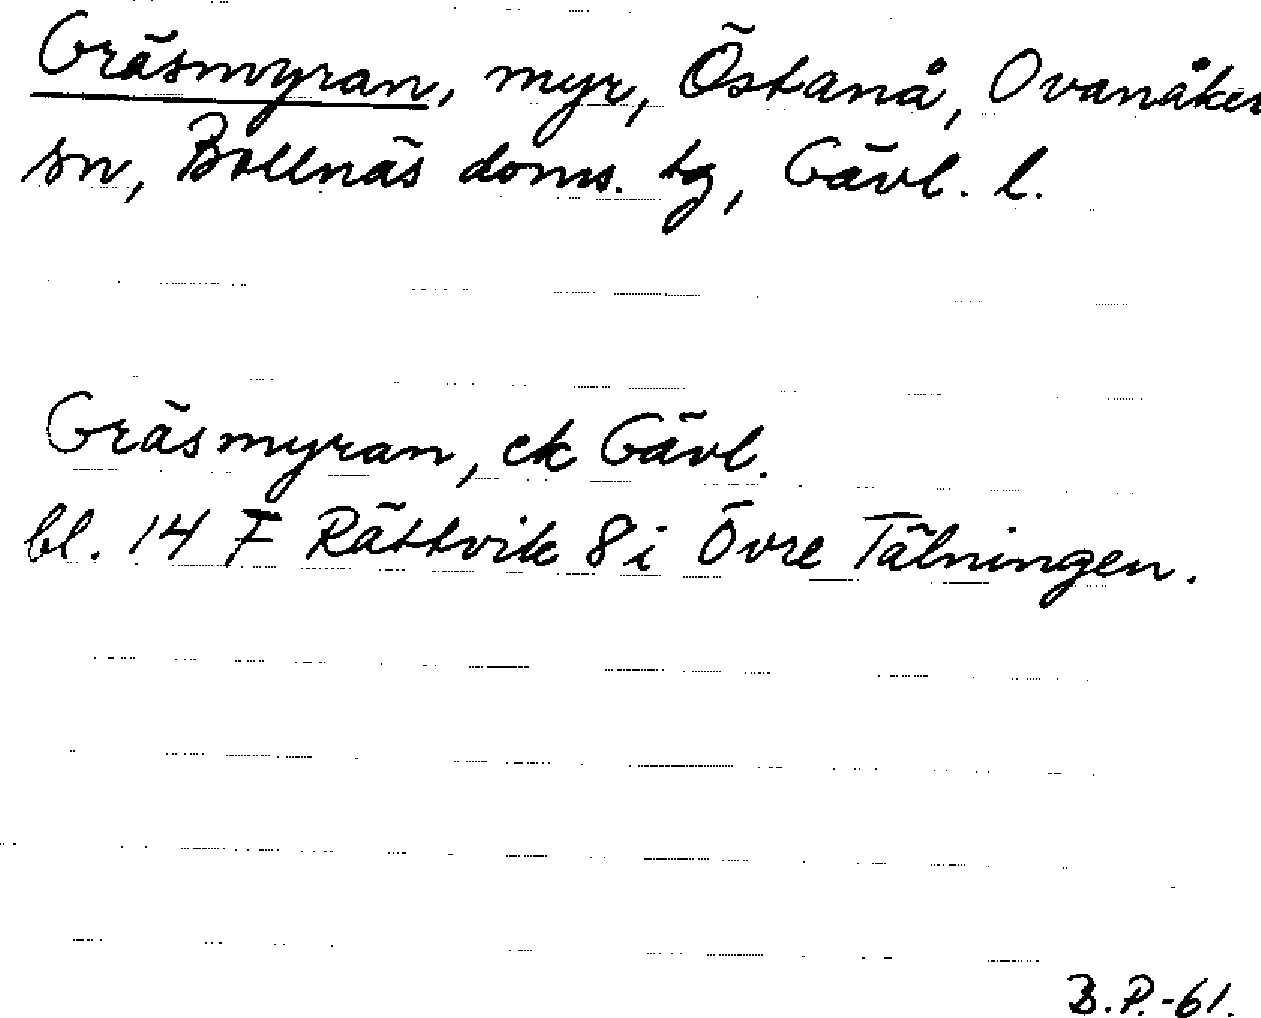 Gräsmyran, myr, Östanå, Ovanåker
sn, Bollnäs doms. tg, Gävl. l.
Gräsmyran, ek Gävl.
bl. 14 F Rättvik 8 i Övre Tälningen.
B.P.-61.